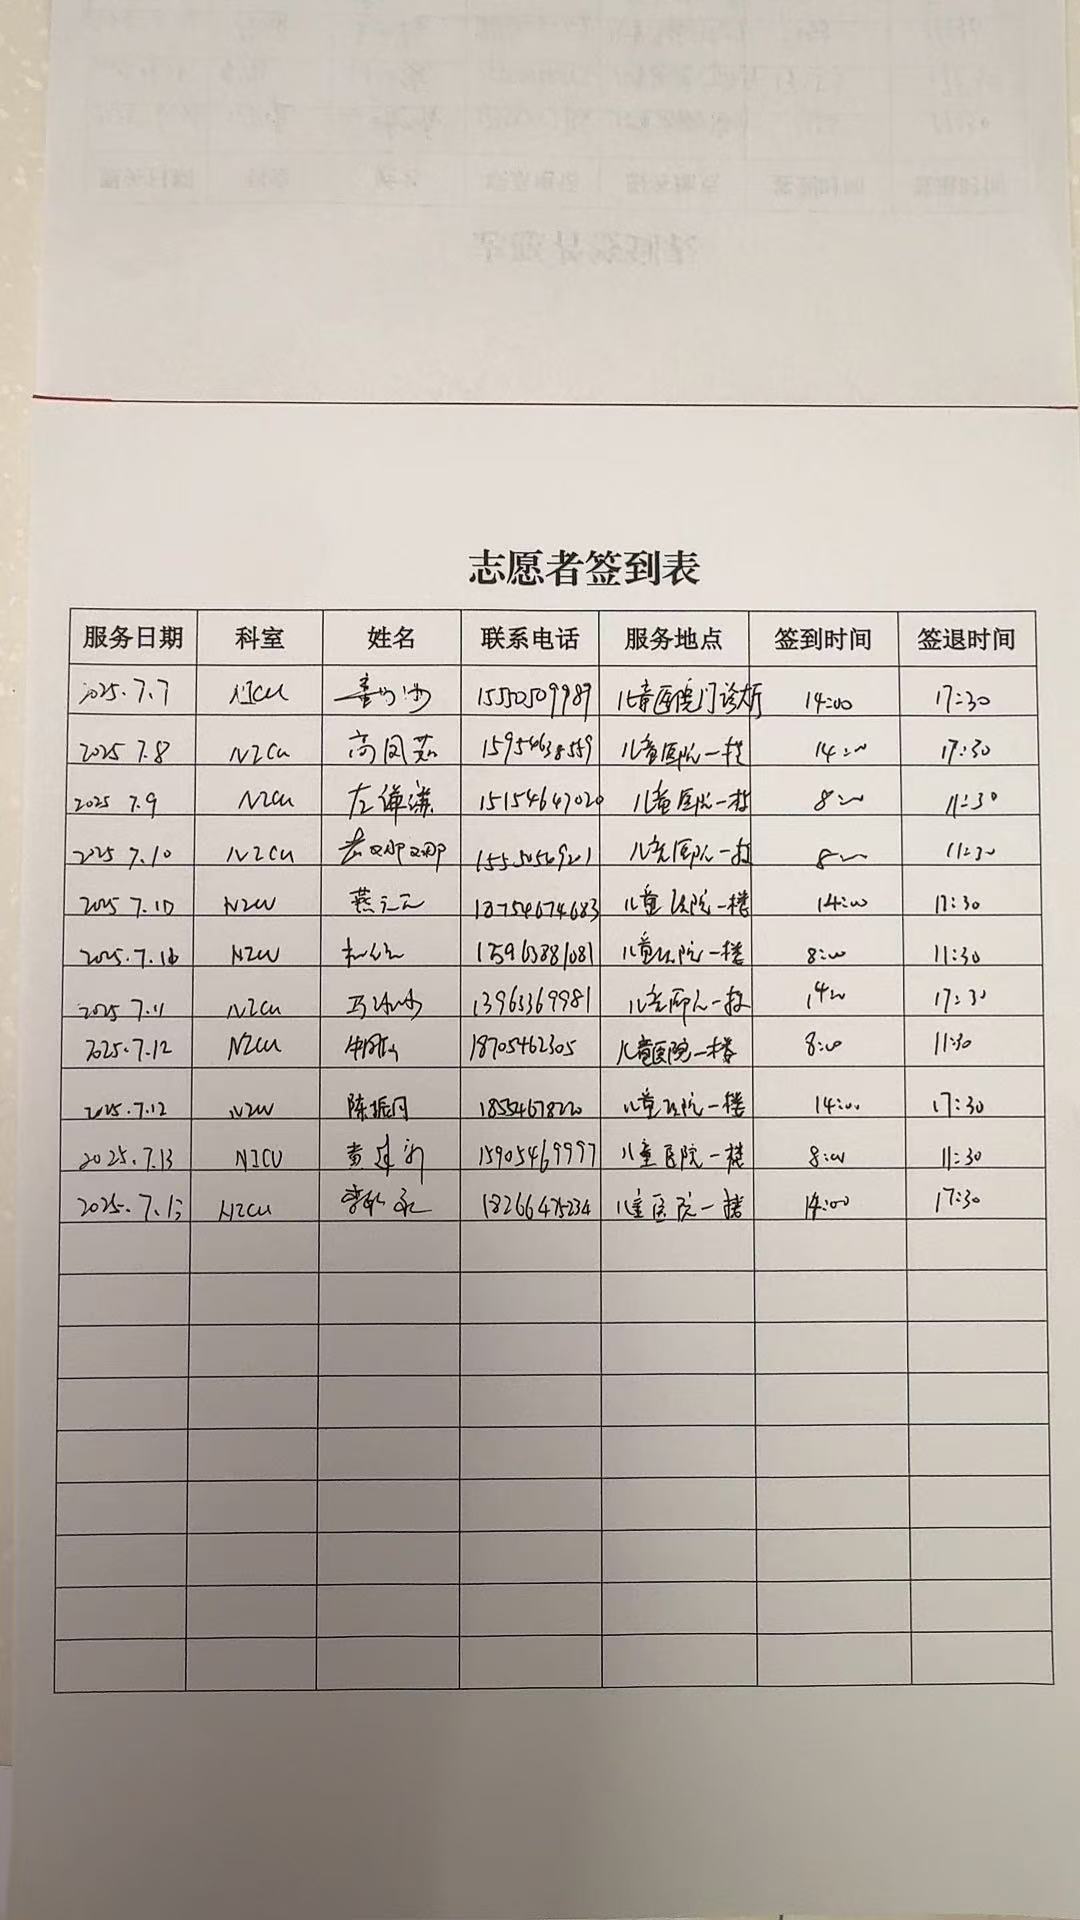 志愿者签到表
服务日期 科室 姓名 联系电话 服务地点 签到时间 签退时间
2025.7.7 NICU 15550509989 儿童医院门诊 14:00 17:30
2025 7.8 NICU 高凤茹 15954638559 儿童医院一楼 14:00 17:30
2025 7.9 NICU 左 15154647020 儿童医院一楼 8:00 11:30
2025 7.10 NICU 儿童医院一楼 8:00 11:30
2025 7.10 NICU 燕元元 18754674683 儿童医院一楼 14:00 17:30
2025.7.10 NICU 15963881081 儿童医院一楼 8:00 11:30
2025 7.11 NICU 马 13963369981 儿童医院一楼 14:00 17:30
2025.7.12 NICU 18705462305 儿童医院一楼 8:00 11:30
2025.7.12 NICU 陈振同 18554678220 儿童医院一楼 14:00 17:30
2025.7.13 NICU 黄建新 15905469997 儿童医院一楼 8:00 11:30
2025.7.13 NICU 李 18266475234 儿童医院一楼 14:00 17:30